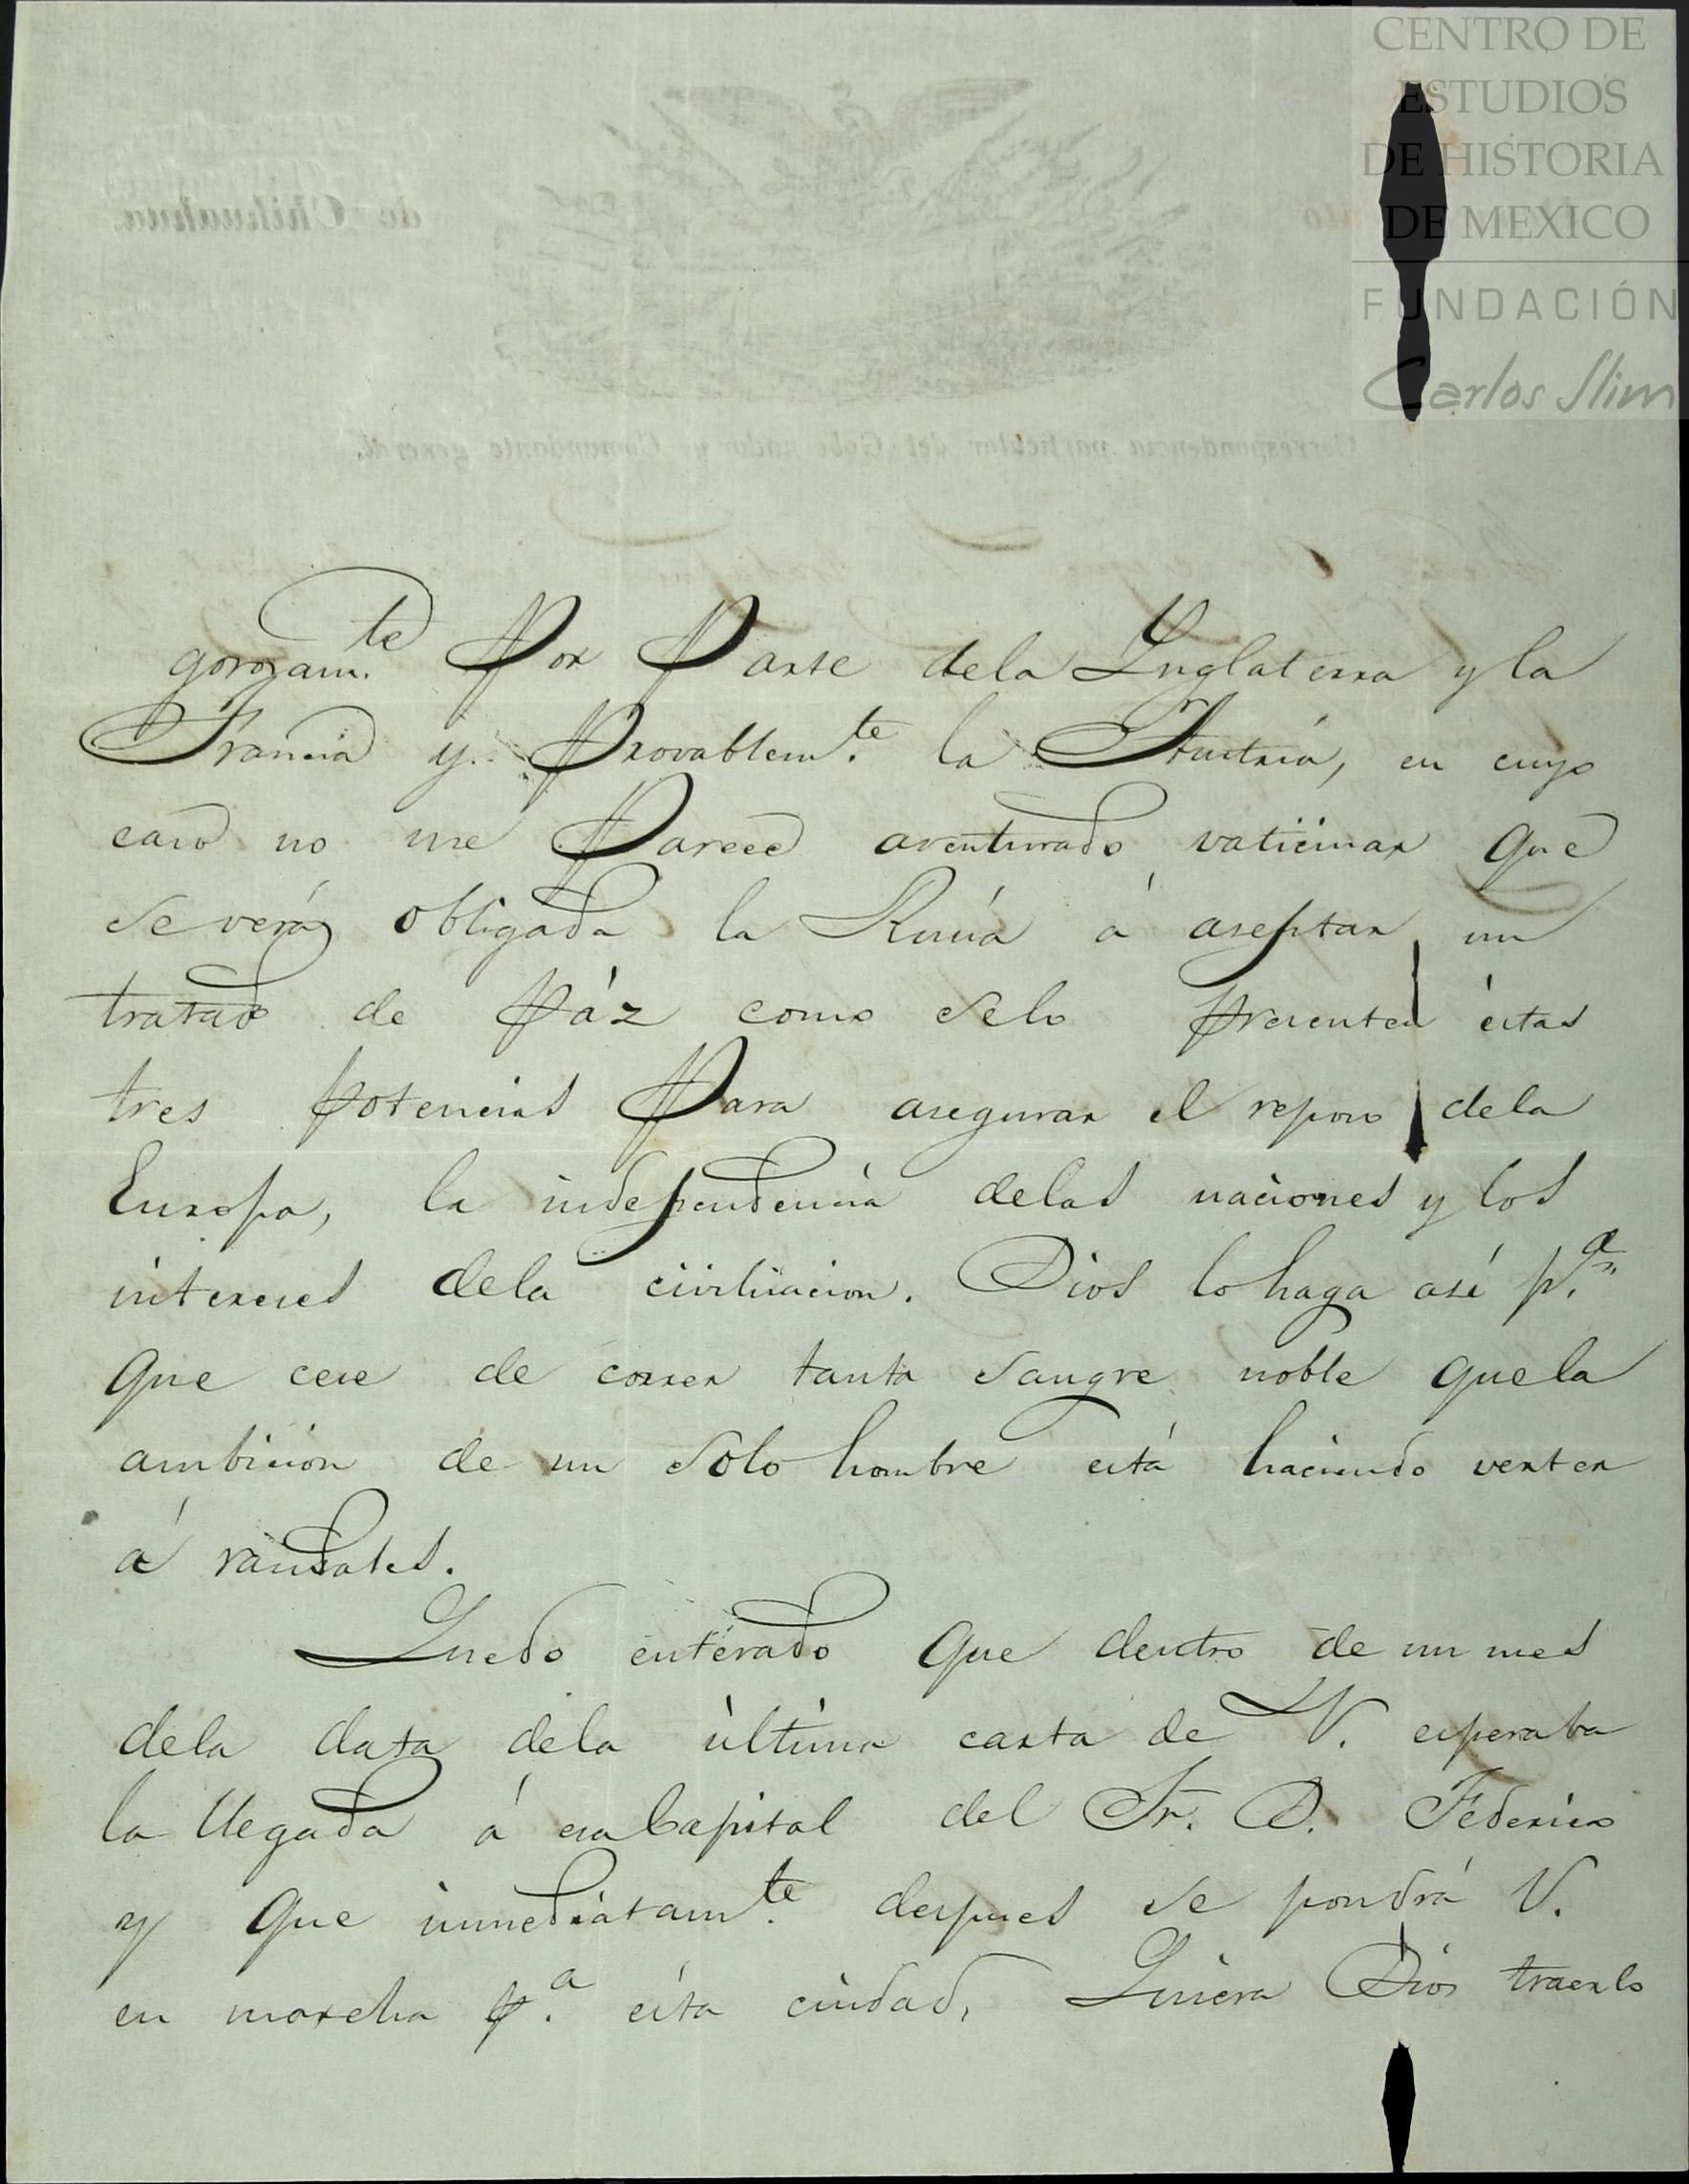 CENTRO DE
ESTUDIOS
DE HISTORIA
DE MEXICO
FUNDACIÓN
Carlos Slim
de Chihuahua.
Correspondencia particular del Gobernador y Comandante general.
gorozam.te Por Parte dela Ynglaterra y la
Francia y Provablem.te la Austria, en cuyo
caso no me Parece aventurado vaticinar que
se verá obligada la Rusia á aseptar un
tratado de Páz como selo presenten éstas
tres potencias Para asegurar el reposo dela
Europa, la independencia delas naciones y los
intereses dela civilisacion. Dios lo haga asi p.a
que cese de correr tanta sangre noble quela
ambicion de un solo hombre está haciendo verter
á raudales.
Quedo enterado que dentro de un mes
dela data dela ultima carta de V. esperaba
la llegada á esa Capital del Sr. D. Federico
y que immediatam.te despues se pondrá V.
en marcha p.a ésta ciudad, Quiera Dios traerlo